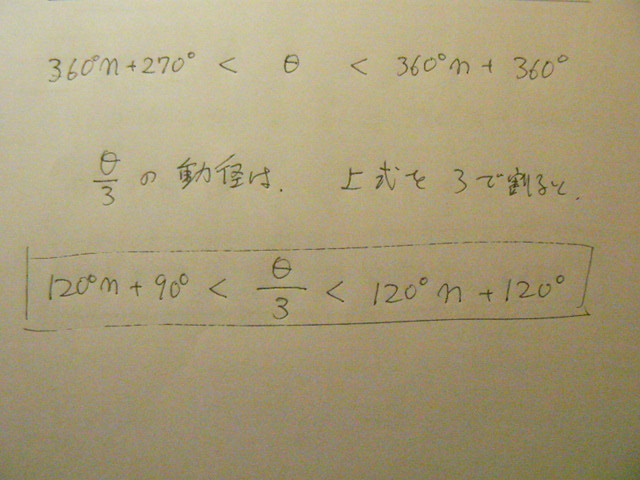 360°n+270° < θ < 360°n+ 360°
θ/3 の動径は. 上式を3で割ると.
120°n+90° < θ/3 < 120°n+120°